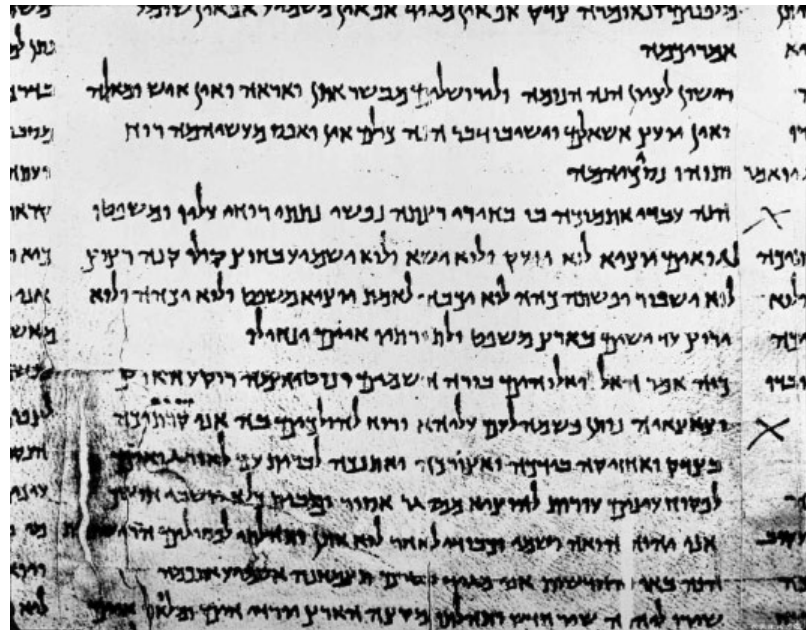 מלפנים ונאומרה צדק אף אין מגיד אף אין משמיע אף אין שומע
אמריכמה
רישון לציון הנה הנומה ולירושלים מבשר אתן ואראה ואין איש ומאלה
ואין יועץ אשאלם וישיבו דבר הנה כולם אין ואפס מעשיהמה רוח
ותוהו נסכיהמה
הנה עבדי אתמוכה בו בחירי רצתה נפשי נתתי רוחי עליו ומשפטו
לגואים יוציא לוא יזעק ולוא ישא ולוא ישמיע בחוץ קולו קנה רצוץ
לוא ישבור ופשתה כהה לוא יכבה לאמת יוציא משפט ולוא יכהה ולוא
ירוץ עד ישים בארץ משפט ולתורתיו איים ינחילו
כוה אמר האל ואלוהים בורה השמים ונוטיהמה רוקע הארץ
וצאצאיה נותן נשמה לעם עליהא ורוח להולכים בה אני קרתיכה
בצדק ואחזיקה בידכה ואצורכה ואתנכה לברית עם לאור גואים
לפקוח עינים עורות להוציא ממסגר אסיר ומבית כלא יושבי חושך
אני יהוה הואה ושמי וכבודי לאחר לוא אתן ותהלתי לפסילים
הנה באו והחדשות אני מגיד בטרם תצמחנה אשמיע אתכמה
שירו ליהוה שיר חדש ותהלתו מקצה הארץ יורדי הים ומלאו איים